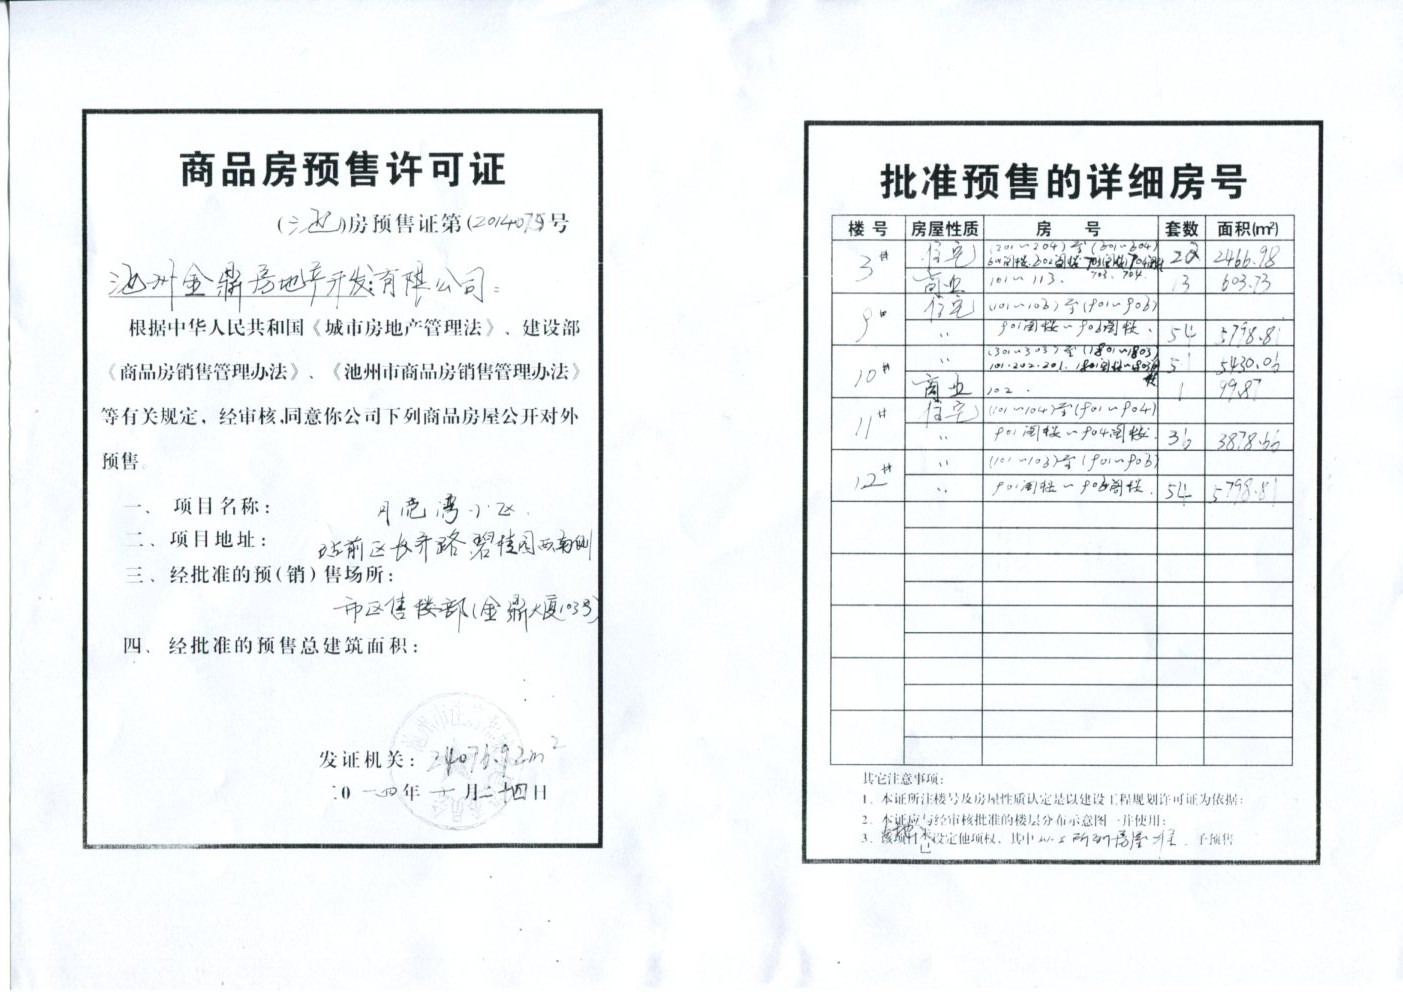 商品房预售许可证
(池)房预售证第(2014075号
池州金鼎房地产开发有限公司:
根据中华人民共和国《城市房地产管理法》、建设部
《商品房销售管理办法》、《池州市商品房销售管理办法》
等有关规定,经审核,同意你公司下列商品房屋公开对外
预售
一、项目名称: 月亮湾小区.
二、项目地址: 站前区长齐路碧桂园西南侧
三、经批准的预(销)售场所:
市区售楼部(金鼎大厦103号)
四、经批准的预售总建筑面积:
发证机关: 24076.92m²
二0一四年十一月二十四日
批准预售的详细房号
楼号 房屋性质 房号 套数 面积(m²)
3# 住宅 (201~204)至(601~604) 2466.98
703、704
商业 101~113. 13 603.73
9# 住宅 (101~106)至(901~906)
〃 901阁楼~906阁楼. 54 5798.81
10# 〃 (301~303)至(1801~1803) 51 5430.06
101.202.201.
商业 102. 1 99.87
11# 住宅 (101~104)至(901~904)
〃 901阁楼~904阁楼. 36 3878.66
12# 〃 (101~106)至(901~906)
〃 901阁楼~906阁楼. 54 5798.81
其它注意事项:
1、本证所注楼号及房屋性质认定是以建设工程规划许可证为依据;
2、本证应与经审核批准的楼层分布示意图一并使用;
3、该项目未设定他项权,其中以上所列房屋准 予预售